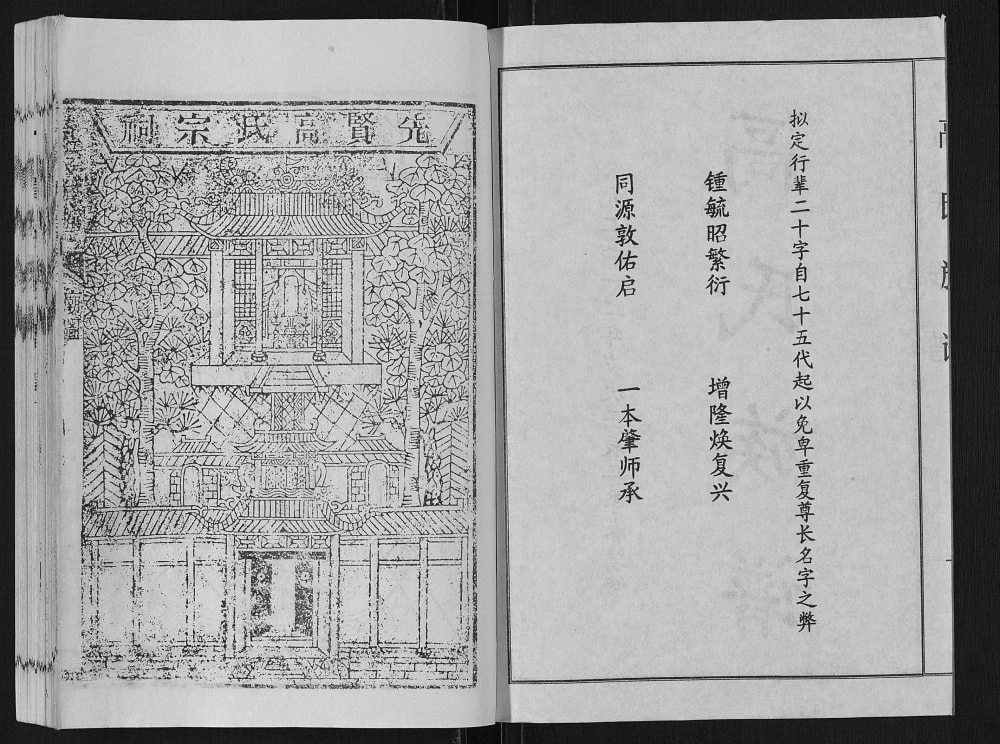 高氏族谱
拟定行辈二十字自七十五代起以免卑重复尊长名字之弊
锺毓昭繁衍 增隆焕复兴
同源敦佑启 一本肇师承
先賢高氏宗祠